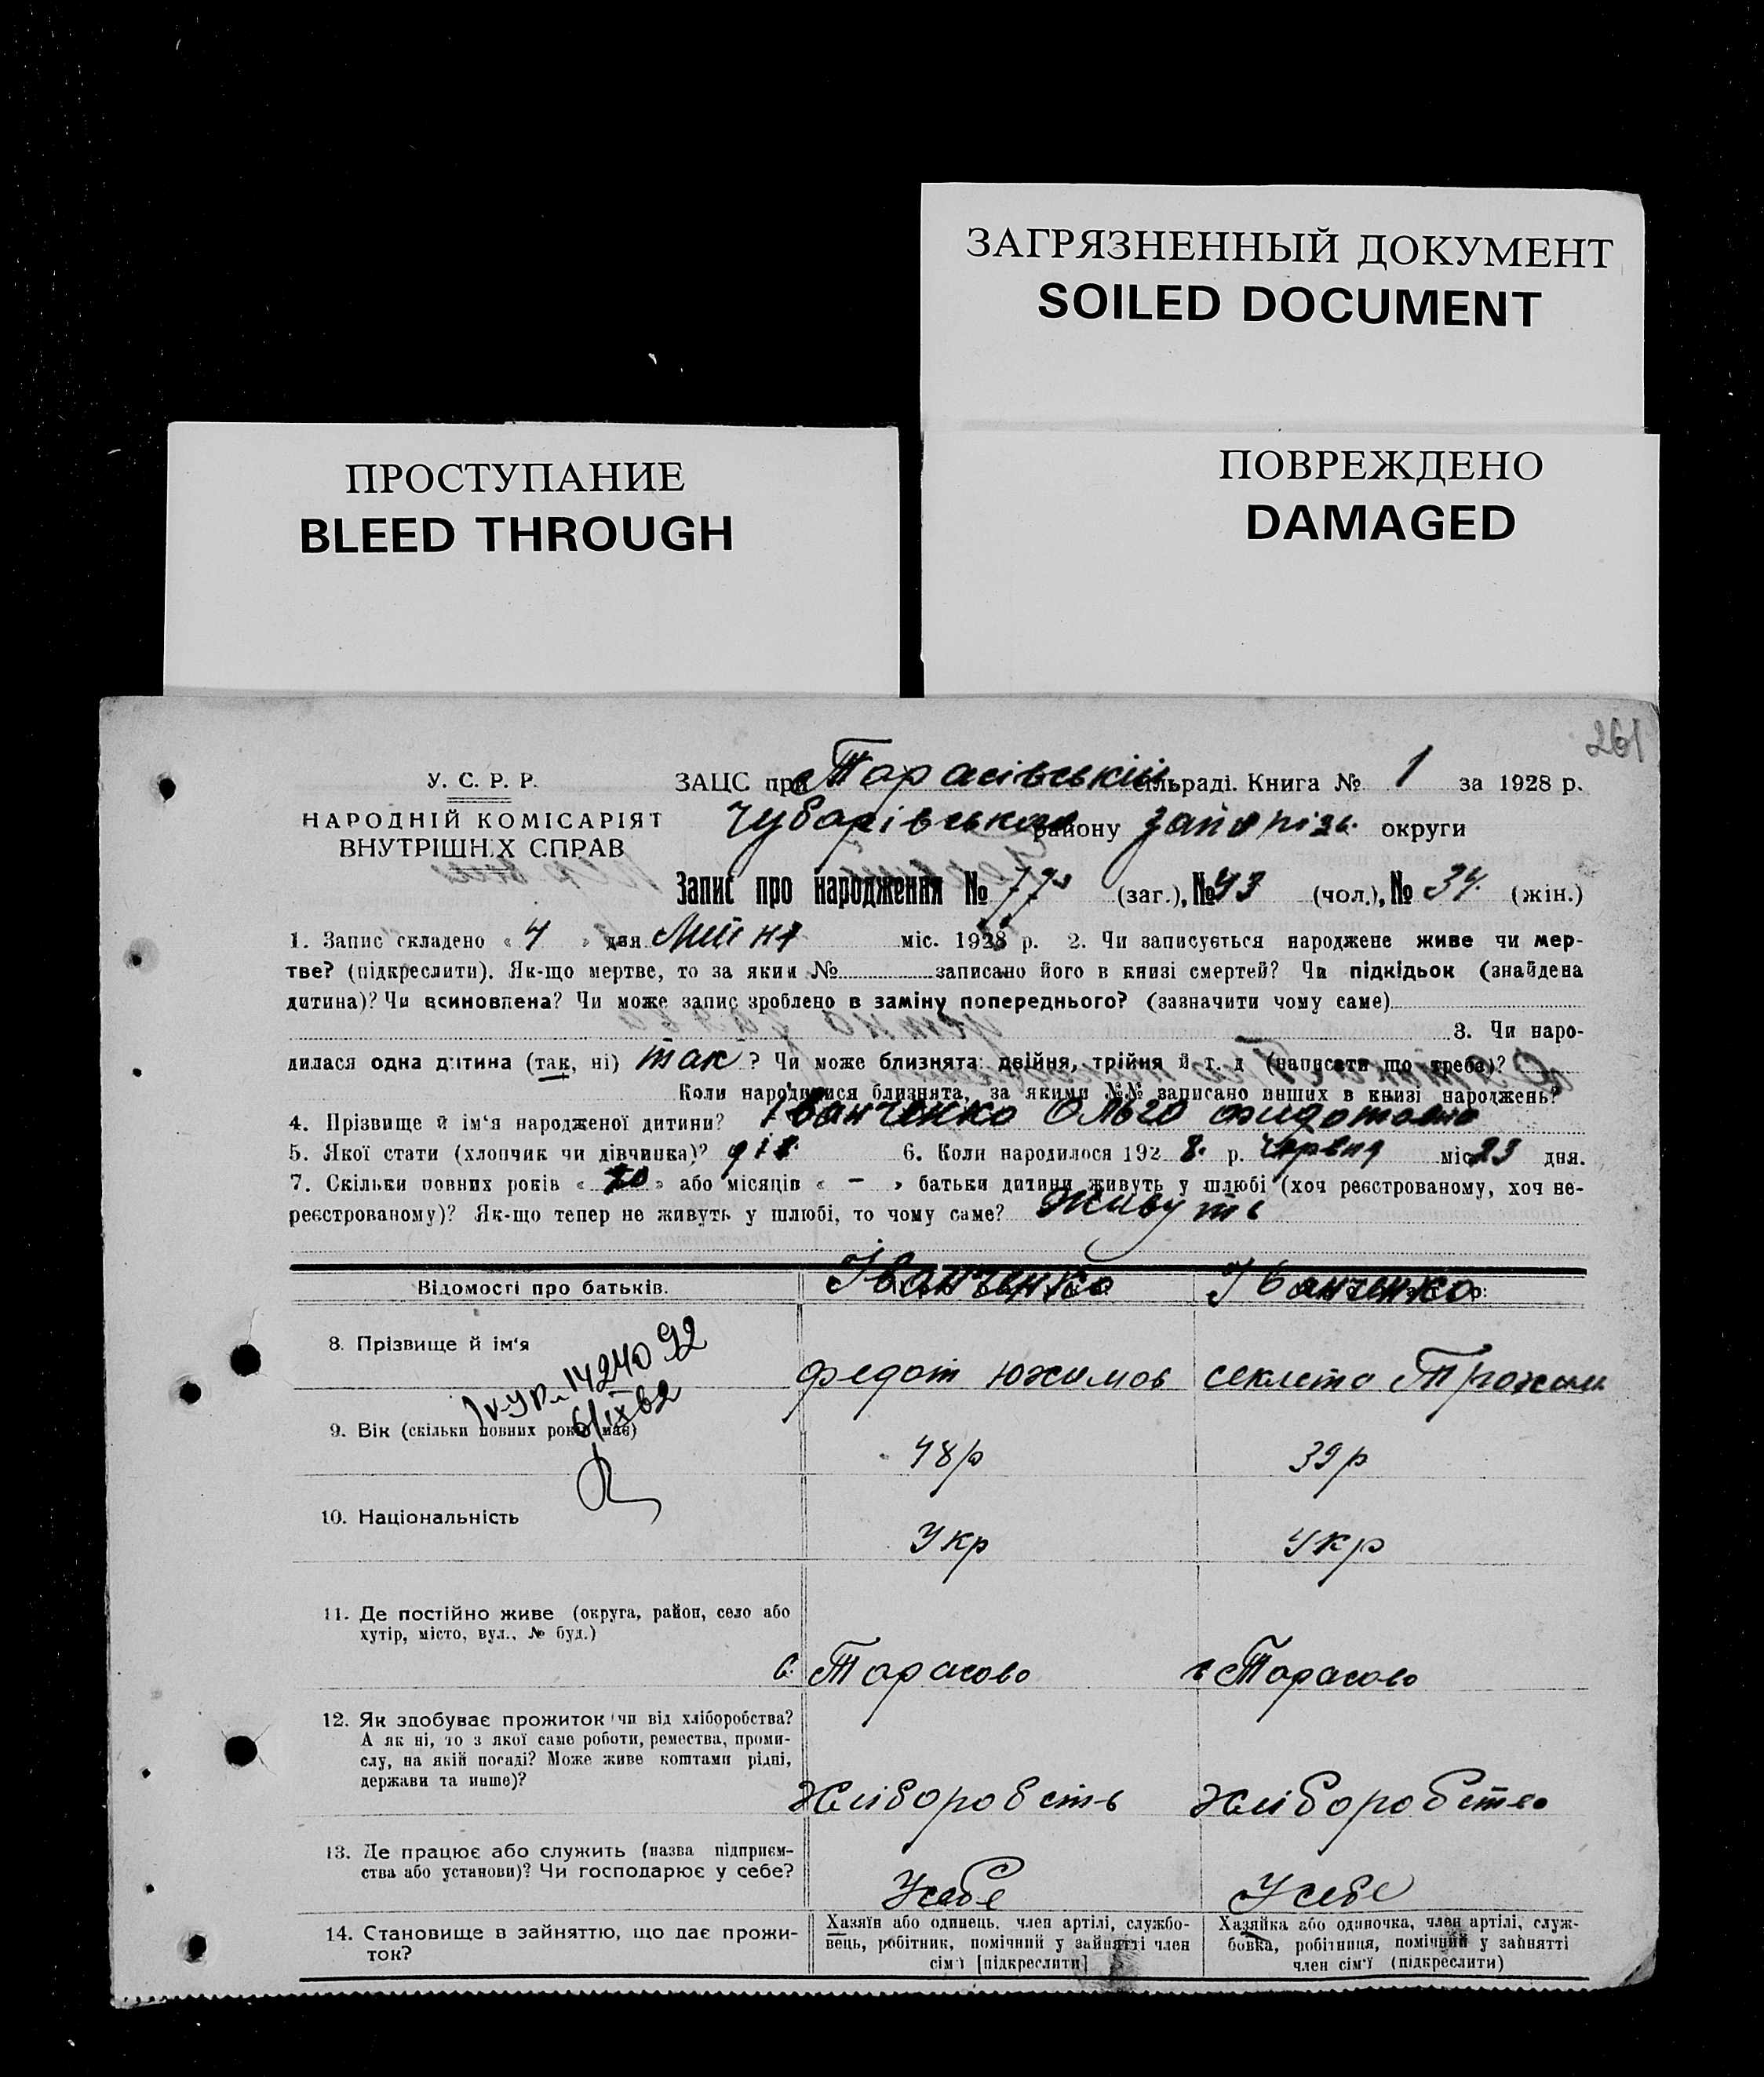 ЗАГРЯЗНЕННЫЙ ДОКУМЕНТ
SOILED DOCUMENT
ПРОСТУПАНИЕ
BLEED THROUGH
ПОВРЕЖДЕНО
DAMAGED
261
У. С. Р. Р.
НАРОДНІЙ КОМІСАРІЯТ
ВНУТРІШНІХ СПРАВ
ЗАЦС при Тарасівській сільраді. Книга № 1 за 1928 р.
Чубарівського району Запоріз. округи
Запис про народження № 77 (заг.), № 43 (чол.), № 34 (жін.)
1. Запис складено « 4 » дня Липня міс. 1928 р. 2. Чи записується народжене живе чи мер-
тве? (підкреслити). Як-що мертве, то за яким № записано його в книзі смертей? Чи підкідьок (знайдена
дитина)? Чи всиновлена? Чи може запис зроблено в заміну попереднього? (зазначити чому саме)
3. Чи наро-
дилася одна дитина (так, ні) так ? Чи може близнята: двійня, трійня й т. д (написати що треба)?
Коли народилися близнята, за якими №№ записано инших в книзі народжень?
4. Прізвище й ім'я народженої дитини? Іванченко Ольга Фидотовна
5. Якої стати (хлопчик чи дівчинка)? дів. 6. Коли народилося 192 8. р. Червня міс. 23 дня.
7. Скільки повних років « 20 » або місяців « – » батьки дитини живуть у шлюбі (хоч реєстрованому, хоч не-
реєстрованому)? Як-що тепер не живуть у шлюбі, то чому саме? Живуть
Відомості про батьків. Іванченко Іванченко
8. Прізвище й ім'я Федот Юхимов Секлета Трохим
14240 92
6/IX 62
9. Вік (скільки повних років має) 48 р 39 р
10. Національність Укр Укр
11. Де постійно живе (округа, район, село або
хутір, місто, вул., № буд.)
с. Тарасово с Тарасово
12. Як здобуває прожиток (чи від хліборобства?
А як ні, то з якої саме роботи, ремества, проми-
слу, на якій посаді? Може живе коштами рідні,
держави та инше)?
Хліборобств Хліборобство
13. Де працює або служить (назва підприєм-
ства або установи)? Чи господарює у себе?
Усебе Усебе
14. Становище в зайняттю, що дає прожи-
ток?
Хазяїн або одинець, член артілі, службо-
вець, робітник, помічний у зайнятті член
сім'ї [підкреслити]
Хазяйка або одиночка, член артілі, служ-
бовка, робітниця, помічний у зайнятті
член сім'ї (підкреслити)